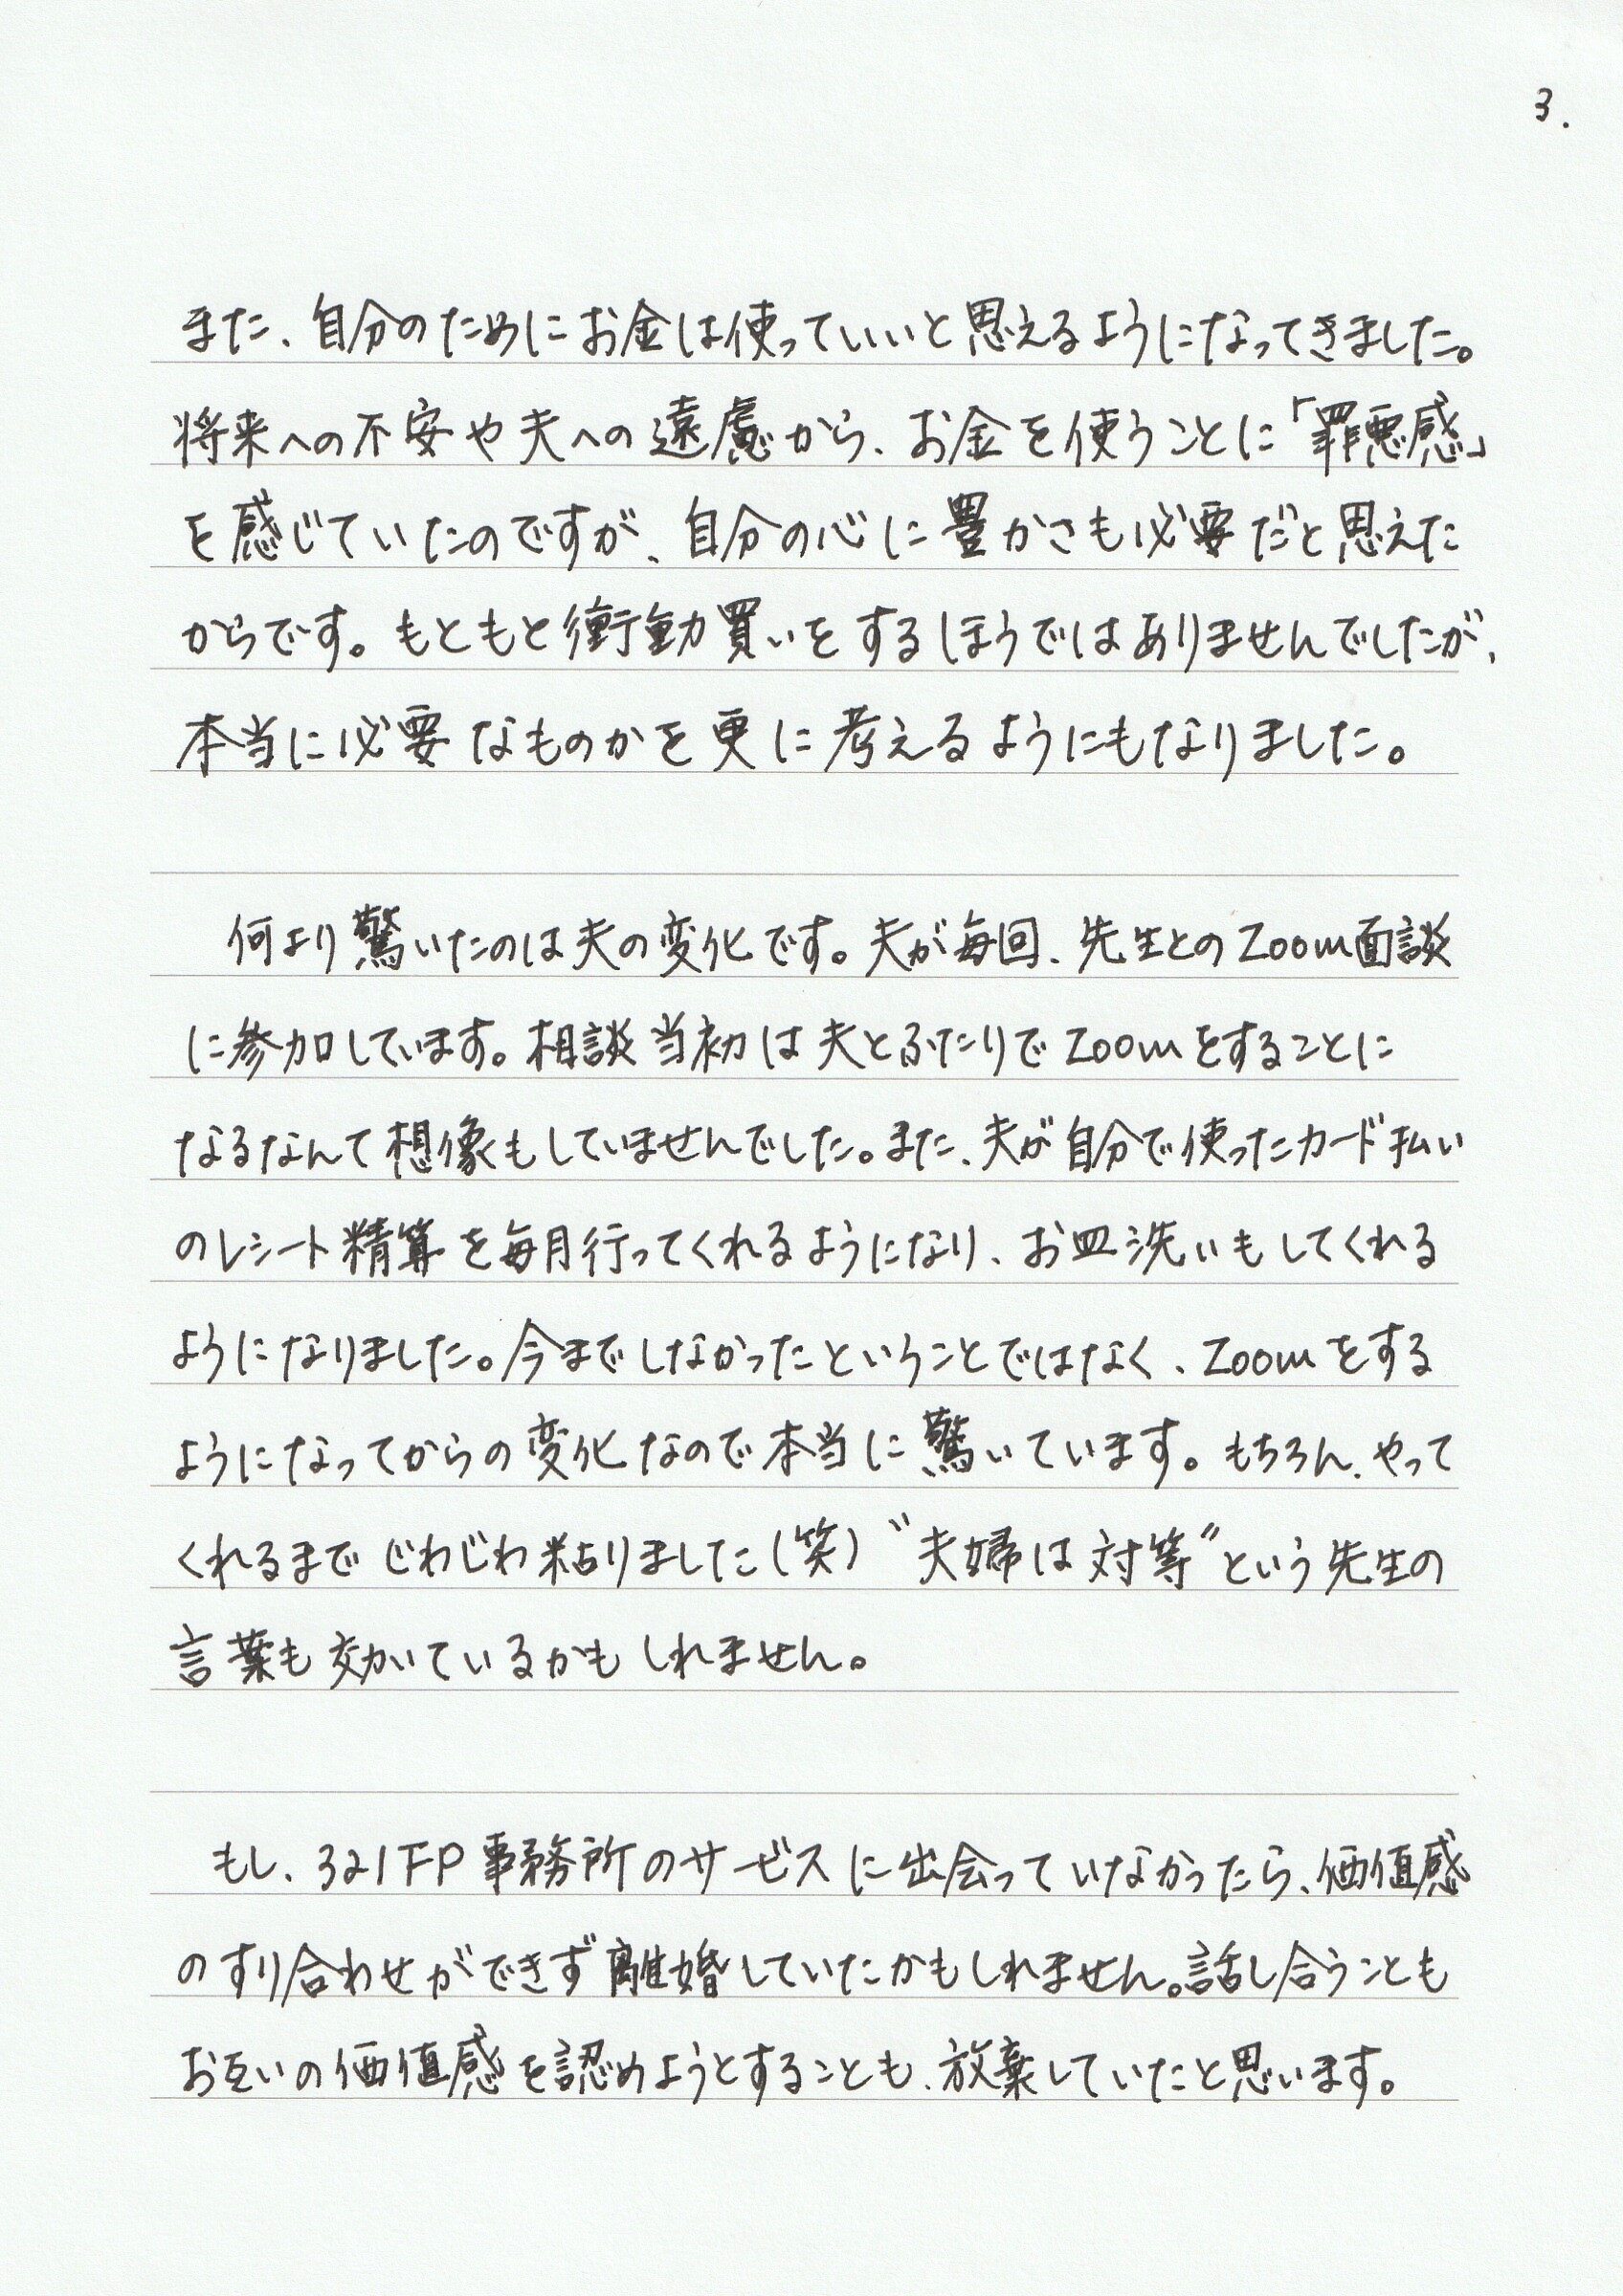 3.
また、自分のためにお金は使っていいと思えるようになってきました。
将来への不安や夫への遠慮から、お金を使うことに「罪悪感」
を感じていたのですが、自分の心に豊かさも必要だと思えた
からです。もともと衝動買いをするほうではありませんでしたが、
本当に必要なものかを更に考えるようにもなりました。
何より驚いたのは夫の変化です。夫が毎回、先生とのZoom面談
に参加しています。相談当初は夫とふたりでZoomをすることに
なるなんて想像もしていませんでした。また、夫が自分で使ったカード払い
のレシート精算を毎月行ってくれるようになり、お皿洗いもしてくれる
ようになりました。今までしなかったということではなく、Zoomをする
ようになってからの変化なので本当に驚いています。もちろん、やって
くれるまでじわじわ粘りました(笑)〝夫婦は対等〟という先生の
言葉も効いているかもしれません。
もし、321FP事務所のサービスに出会っていなかったら、価値感
のすり合わせができず離婚していたかもしれません。話し合うことも
お互いの価値感を認めようとすることも、放棄していたと思います。